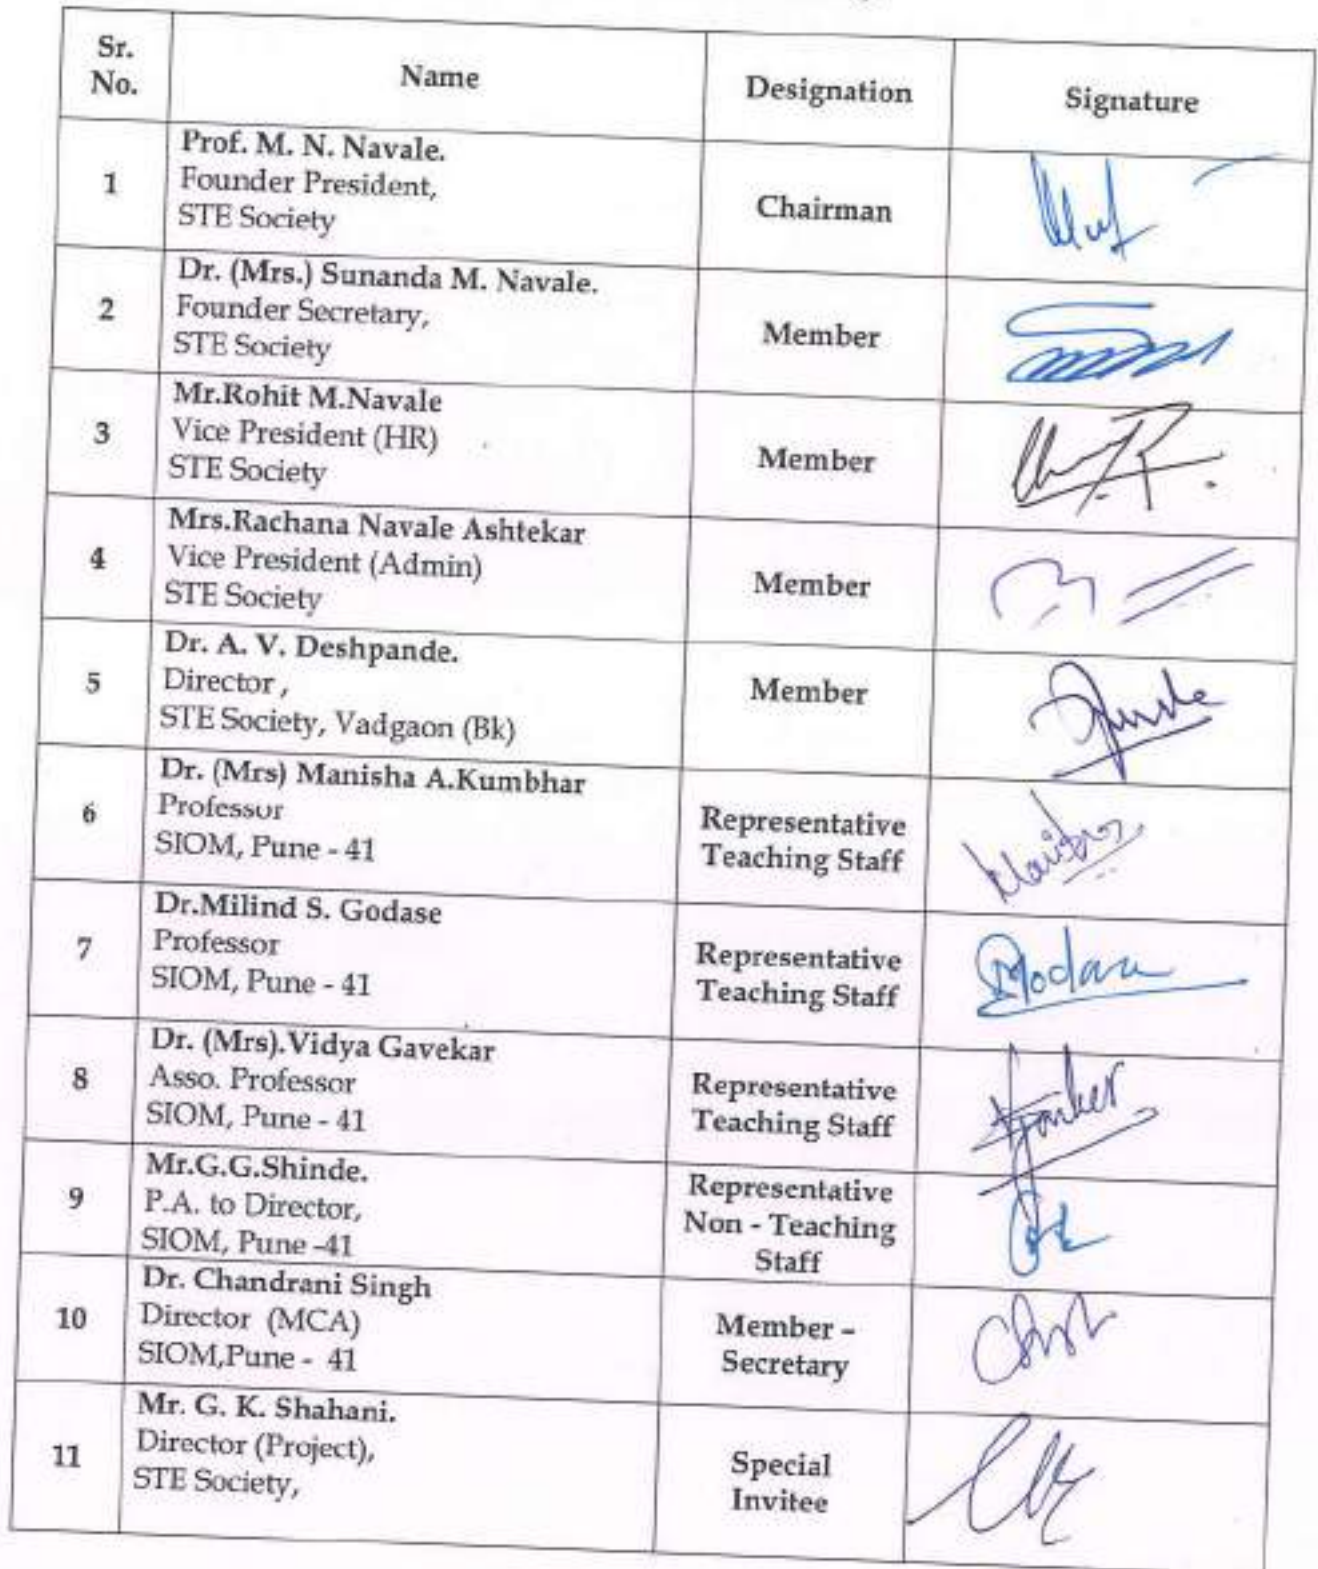 Sr.
No.
Name
Designation
Signature
1
Prof. M. N. Navale.
Founder President,
STE Society
Chairman
2
Dr. (Mrs.) Sunanda M. Navale.
Founder Secretary,
STE Society
Member
3
Mr.Rohit M.Navale
Vice President (HR)
STE Society
Member
4
Mrs.Rachana Navale Ashtekar
Vice President (Admin)
STE Society
Member
5
Dr. A. V. Deshpande.
Director ,
STE Society, Vadgaon (Bk)
Member
6
Dr. (Mrs) Manisha A.Kumbhar
Professor
SIOM, Pune - 41
Representative
Teaching Staff
7
Dr.Milind S. Godase
Professor
SIOM, Pune - 41
Representative
Teaching Staff
8
Dr. (Mrs).Vidya Gavekar
Asso. Professor
SIOM, Pune - 41
Representative
Teaching Staff
9
Mr.G.G.Shinde.
P.A. to Director,
SIOM, Pune -41
Representative
Non - Teaching
Staff
10
Dr. Chandrani Singh
Director (MCA)
SIOM,Pune - 41
Member -
Secretary
11
Mr. G. K. Shahani.
Director (Project),
STE Society,
Special
Invitee